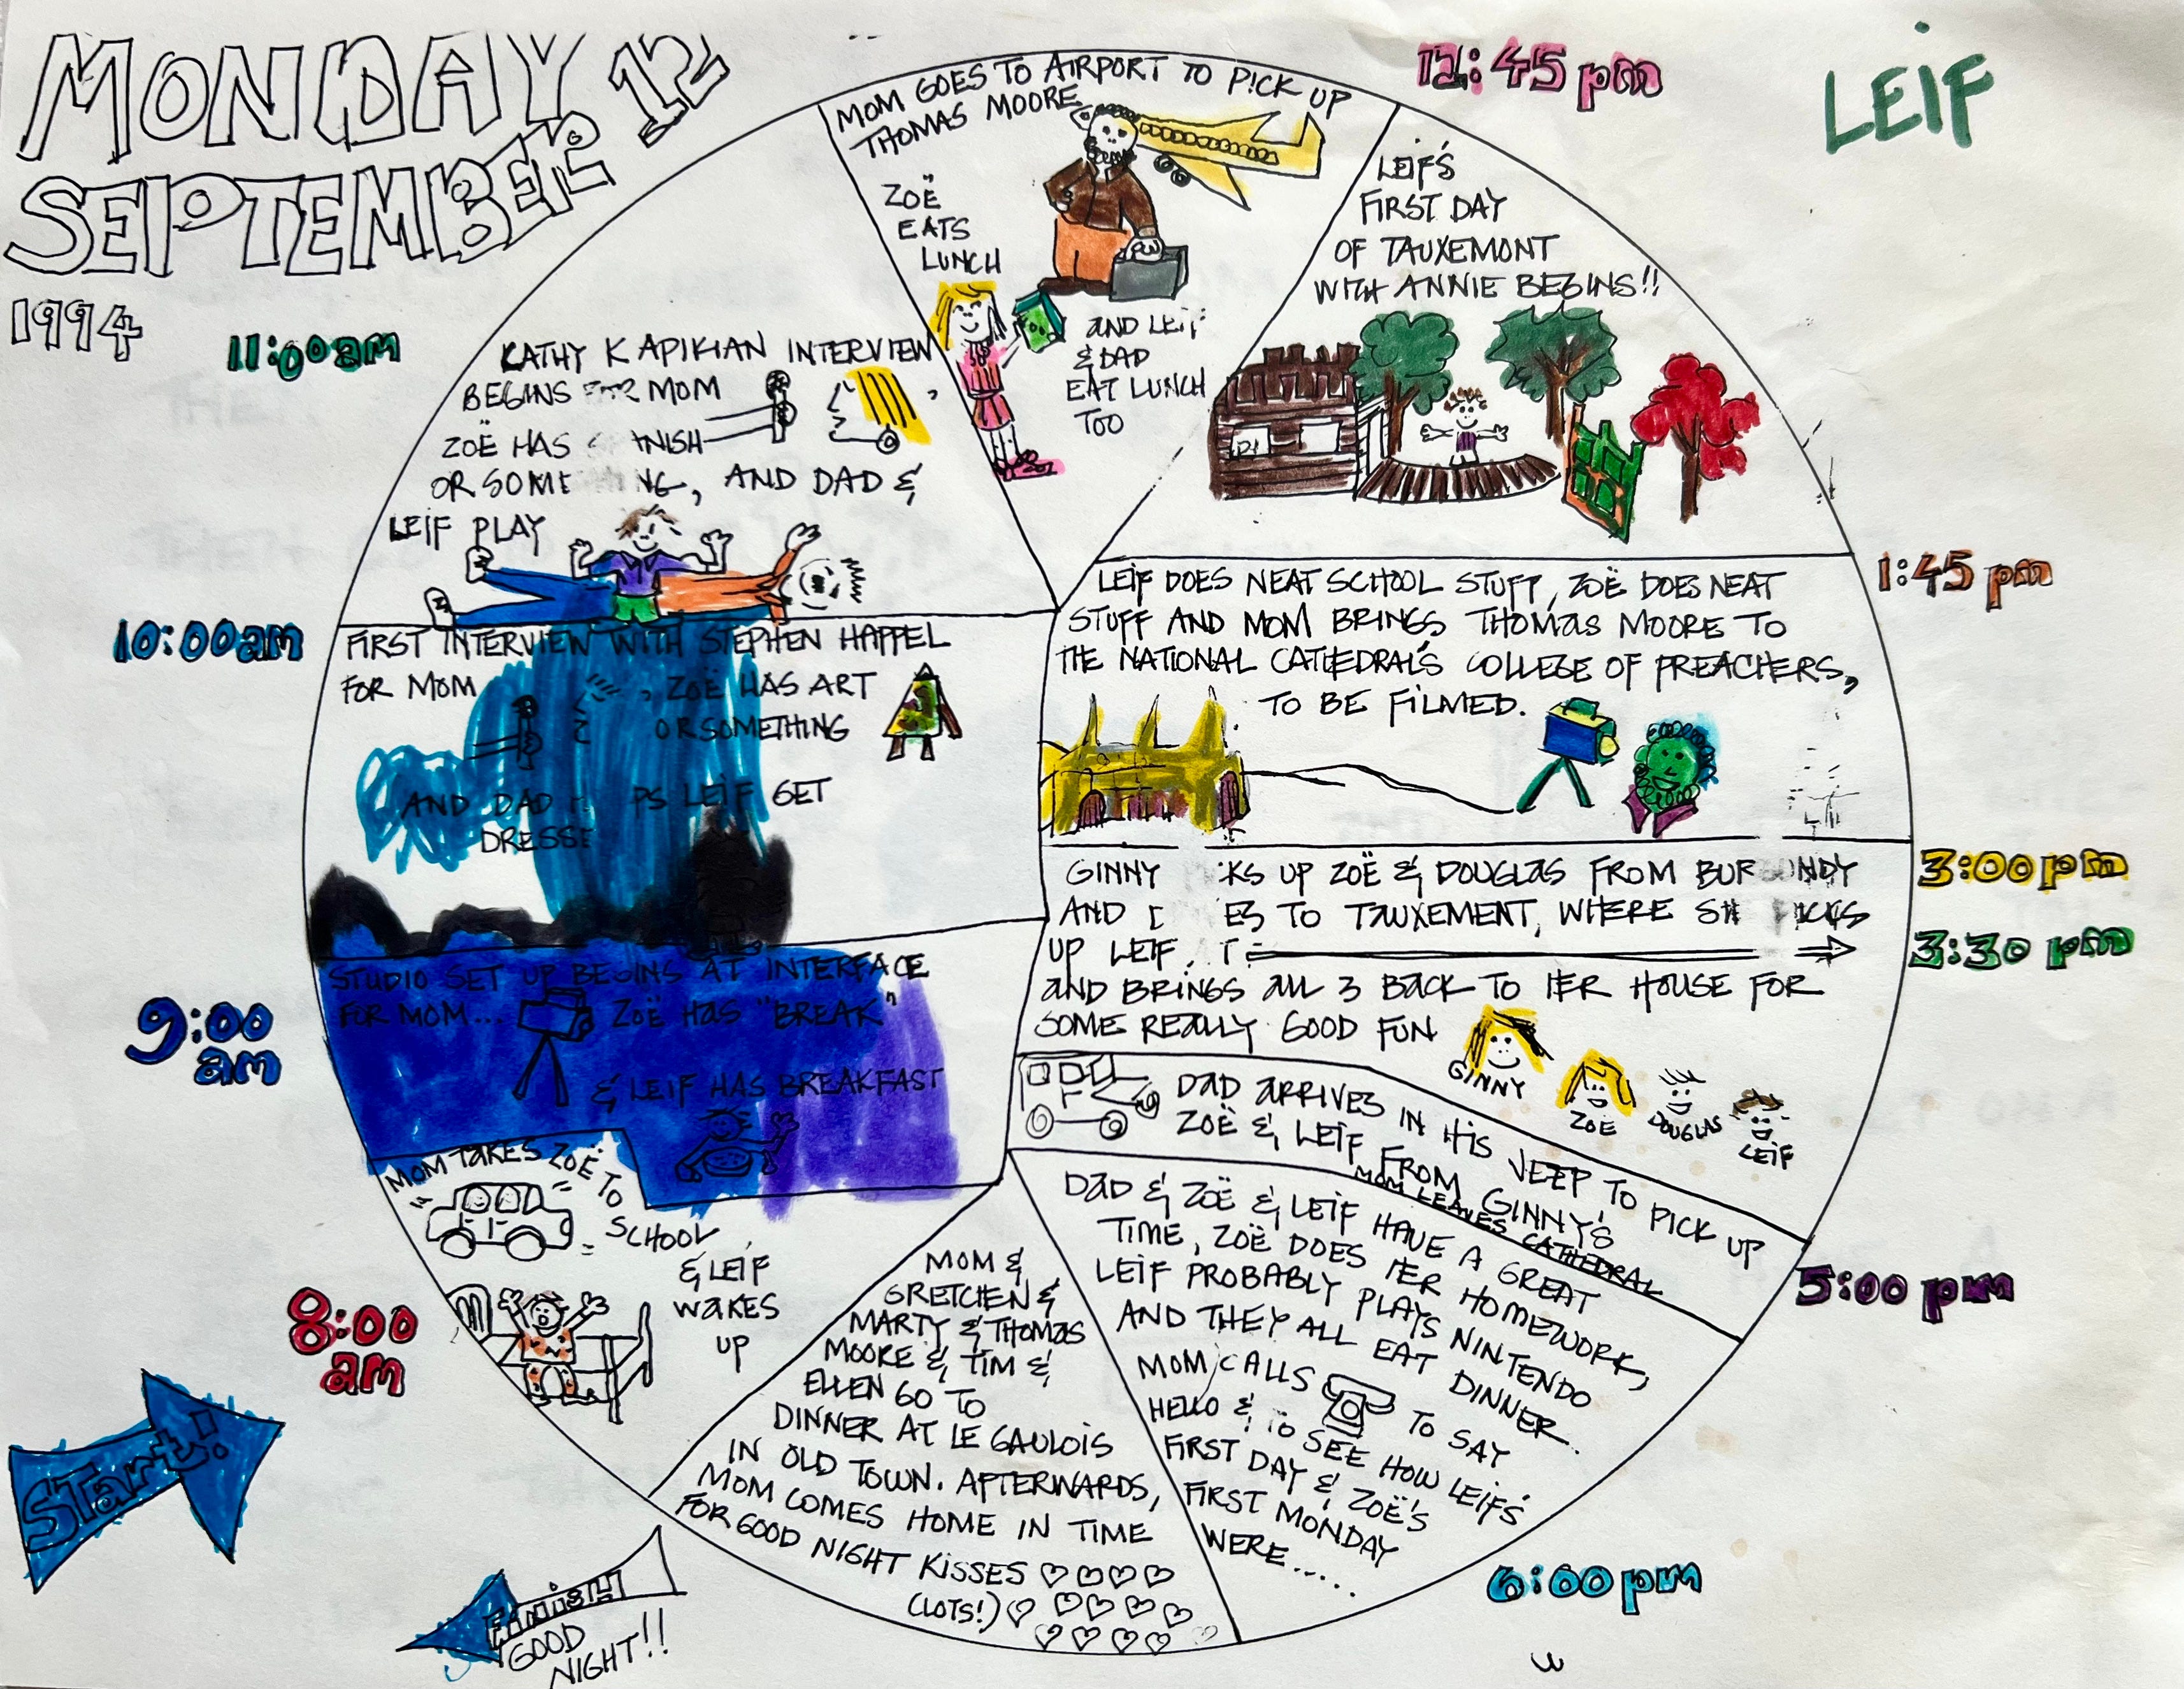 MONDAY
SEPTEMBER 12
1994
LEIF
START!
8:00
am
MOM TAKES ZOË TO
SCHOOL
& LEIF
WAKES
UP
9:00
am
STUDIO SET UP BEGINS AT INTERFACE
FOR MOM... ZOË HAS "BREAK"
& LEIF HAS BREAKFAST
10:00am
FIRST INTERVIEW WITH STEPHEN HAPPEL
FOR MOM , ZOË HAS ART
OR SOMETHING
AND DAD PS LEIF GET
DRESSE
11:00am
KATHY KAPIKIAN INTERVIEW
BEGINS FOR MOM ,
ZOË HAS NISH
OR SOME NG, AND DAD &
LEIF PLAY
MOM GOES TO AIRPORT TO PICK UP
THOMAS MOORE
ZOË
EATS
LUNCH
AND LEIF
& DAD
EAT LUNCH
TOO
12:45 pm
LEIF'S
FIRST DAY
OF TAUXEMONT
WITH ANNIE BEGINS!!
1:45 pm
LEIF DOES NEAT SCHOOL STUFF, ZOË DOES NEAT
STUFF AND MOM BRINGS THOMAS MOORE TO
THE NATIONAL CATHEDRAL'S COLLEGE OF PREACHERS,
TO BE FILMED.
3:00pm
GINNY CKS UP ZOË & DOUGLAS FROM BUR NDY
AND ES TO TAUXEMENT, WHERE SH ICKS
UP LEIF,
3:30 pm
AND BRINGS ALL 3 BACK TO HER HOUSE FOR
SOME REALLY GOOD FUN
GINNY
ZOE
DOUGLAS
LEIF
DAD ARRIVES IN HIS JEEP TO PICK UP
ZOË & LEIF FROM GINNY'S
MOM LEAVES CATHEDRAL
5:00 pm
DAD & ZOË & LEIF HAVE A GREAT
TIME, ZOË DOES HER HOMEWORK,
LEIF PROBABLY PLAYS NINTENDO
AND THEY ALL EAT DINNER.
MOM CALLS TO SAY
HELLO & TO SEE HOW LEIF'S
FIRST DAY & ZOË'S
FIRST MONDAY
WERE.....
6:00 pm
MOM &
GRETCHEN &
MARTY & THOMAS
MOORE & TIM &
ELLEN GO TO
DINNER AT LE GAULOIS
IN OLD TOWN. AFTERWARDS,
MOM COMES HOME IN TIME
FOR GOOD NIGHT KISSES
(LOTS!)
FINISH
GOOD
NIGHT!!